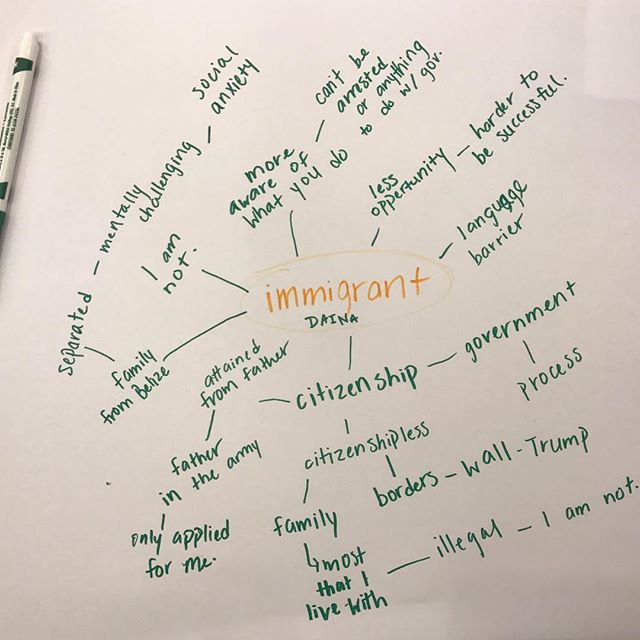 social
anxiety
can't be
arrested
or anything
to do w/ gov.
mentally
challenging
more
aware of
what you do
less
opportunity
harder to
be successful.
language
barrier
I am
not.
separated
family
from Belize
immigrant
DAINA
government
process
attained
from father
citizenship
father
in the army
only applied
for me.
citizenshipless
borders - wall - Trump
family
↳most
that I
live with
illegal - I am not.